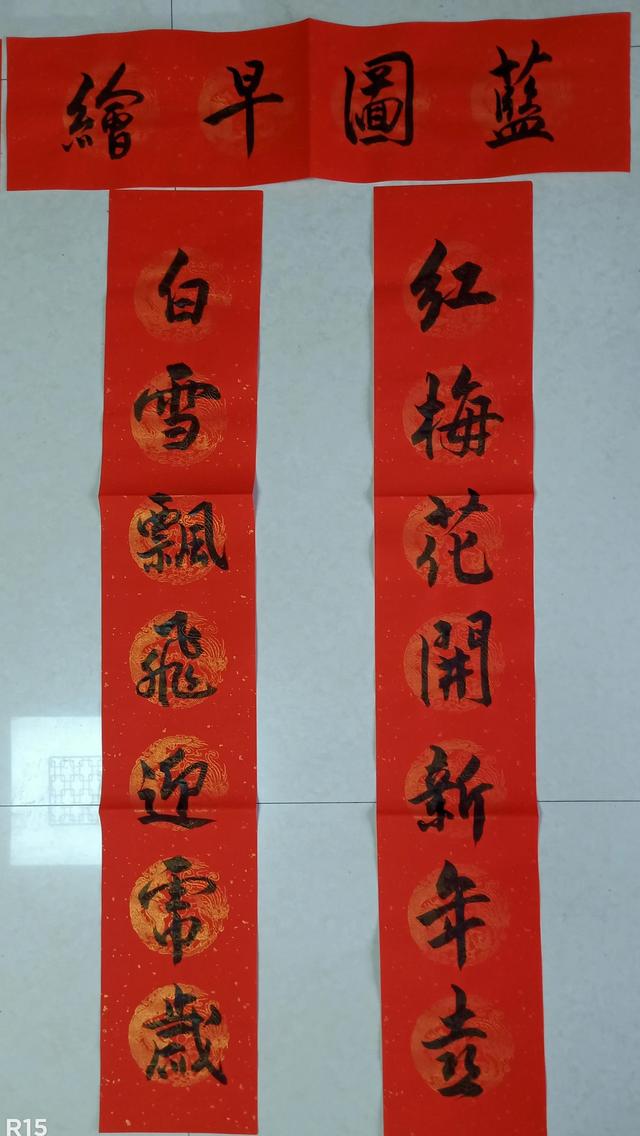 藍圖早繪
红梅花開新年
白雪飄飛迎歲
R15